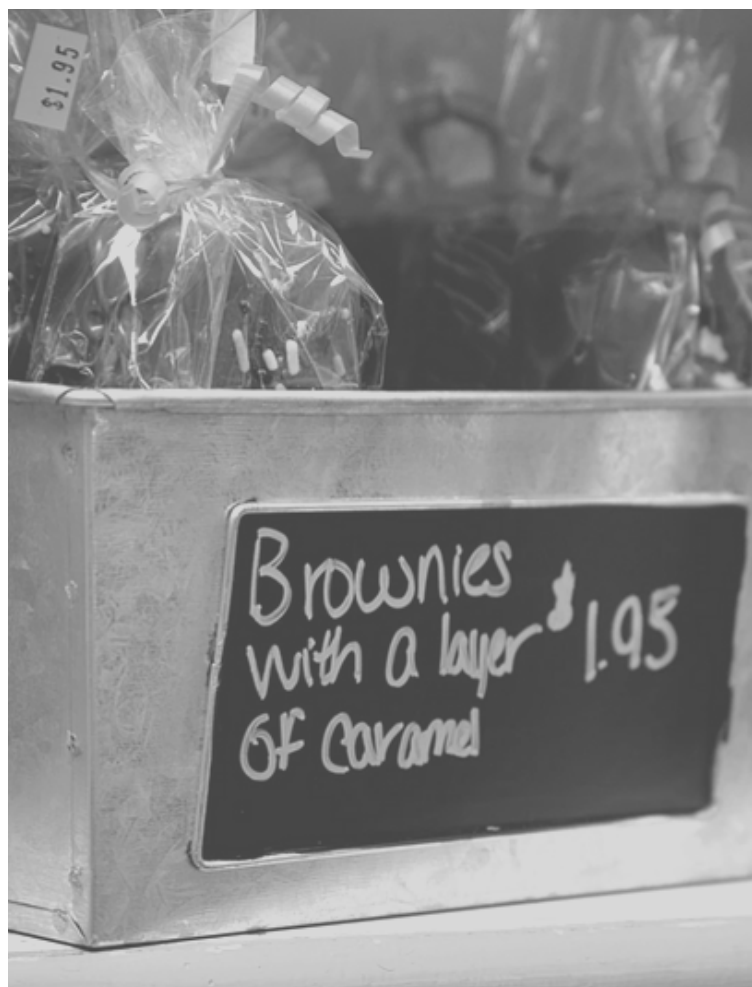 $1.95
Brownies
with a layer $1.95
of caramel